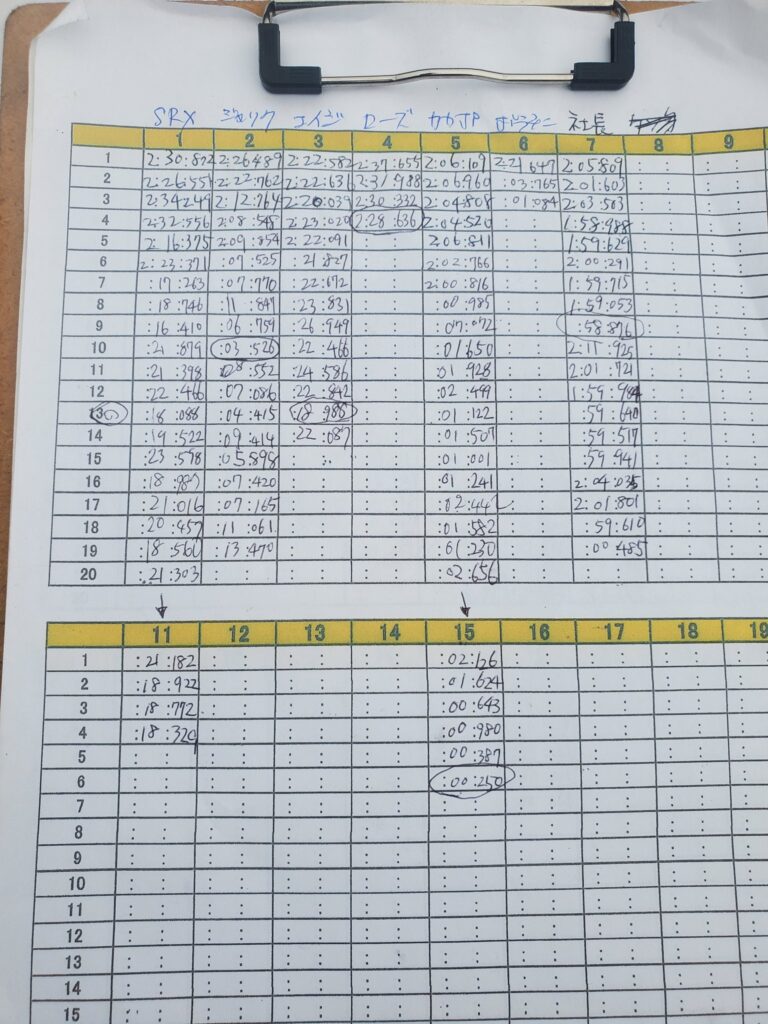 SRX ジェリク エイジ ローズ カカJP 社長
1 2 3 4 5 6 7 8 9
1 2:30:872 2:26489 2:22:582 2:37:655 2:06:109 2:21 647 2:05809 : : : :
2 2:26:551 2:22:762 2:22:631 2:31:988 2:06960 :03:765 2:01:603 : : : :
3 2:34249 2:12:764 2:20:039 2:30:332 2:04808 :01:984 2:03:503 : : : :
4 2:32:556 2:08:548 2:23:020 2:28:636 2:04:520 : : 1:58:988 : : : :
5 2:16:375 2:09:854 2:22:091 : : 2:06:811 : : 1:59:629 : : : :
6 2:23:371 :07:525 :21:827 : : 2:02:766 : : 2:00:291 : : : :
7 :17:263 :07:770 :22:672 : : 2:00:816 : : 1:59:715 : : : :
8 :18:746 :11:847 :23:831 : : :00:985 : : 1:59:053 : : : :
9 :16:410 :06:759 :26:949 : : :07:072 : : :58:876 : : : :
10 :21:879 :03:526 :22:466 : : :01650 : : 2:11:925 : : : :
11 :21:398 :08:552 :24:586 : : :01:928 : : 2:01:721 : : : :
12 :22:466 :07:086 :22:842 : : :02:499 : : 1:59:984 : : : :
13 :18:088 :04:415 :18:986 : : :01:122 : : :59:640 : : : :
14 :19:522 :09:414 :22:087 : : :01:507 : : :59:517 : : : :
15 :23:598 :05:898 : : : : :01:001 : : :59:941 : : : :
16 :18:987 :07:420 : : : : :01:241 : : 2:04:035 : : : :
17 :21:016 :07:165 : : : : :02:442 : : 2:01:801 : : : :
18 :20:457 :11:061 : : : : :01:582 : : :59:610 : : : :
19 :18:560 :13:470 : : : : :01:230 : : :00:485 : : : :
20 :21:303 : : : : : : :02:656 : : : : : : : :
11 12 13 14 15 16 17 18 19
1 :21:182 : : : : : : :02:126 : : : : : : :
2 :18:922 : : : : : : :01:624 : : : : : : :
3 :18:772 : : : : : : :00:643 : : : : : : :
4 :18:329 : : : : : : :00:980 : : : : : : :
5 : : : : : : : : :00:387 : : : : : : :
6 : : : : : : : : :00:250 : : : : : : :
7 : : : : : : : : : : : : : : : : :
8 : : : : : : : : : : : : : : : : :
9 : : : : : : : : : : : : : : : : :
10 : : : : : : : : : : : : : : : : :
11 : : : : : : : : : : : : : : : : :
12 : : : : : : : : : : : : : : : : :
13 : : : : : : : : : : : : : : : : :
14 : : : : : : : : : : : : : : : : :
15 : : : : : : : : : : : : : : : : :